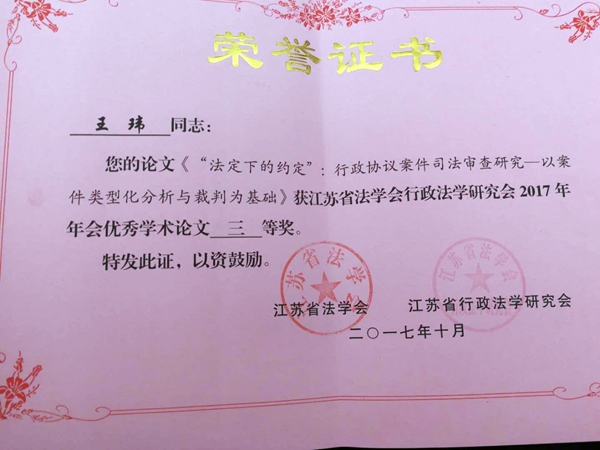 荣誉证书
王玮 同志：
您的论文《“法定下的约定”：行政协议案件司法审查研究—以案
件类型化分析与裁判为基础》获江苏省法学会行政法学研究会 2017 年
年会优秀学术论文 三 等奖。
特发此证，以资鼓励。
江苏省法学会
江苏省法学会
江苏省法学会 江苏省行政法学研究会
二〇一七年十月